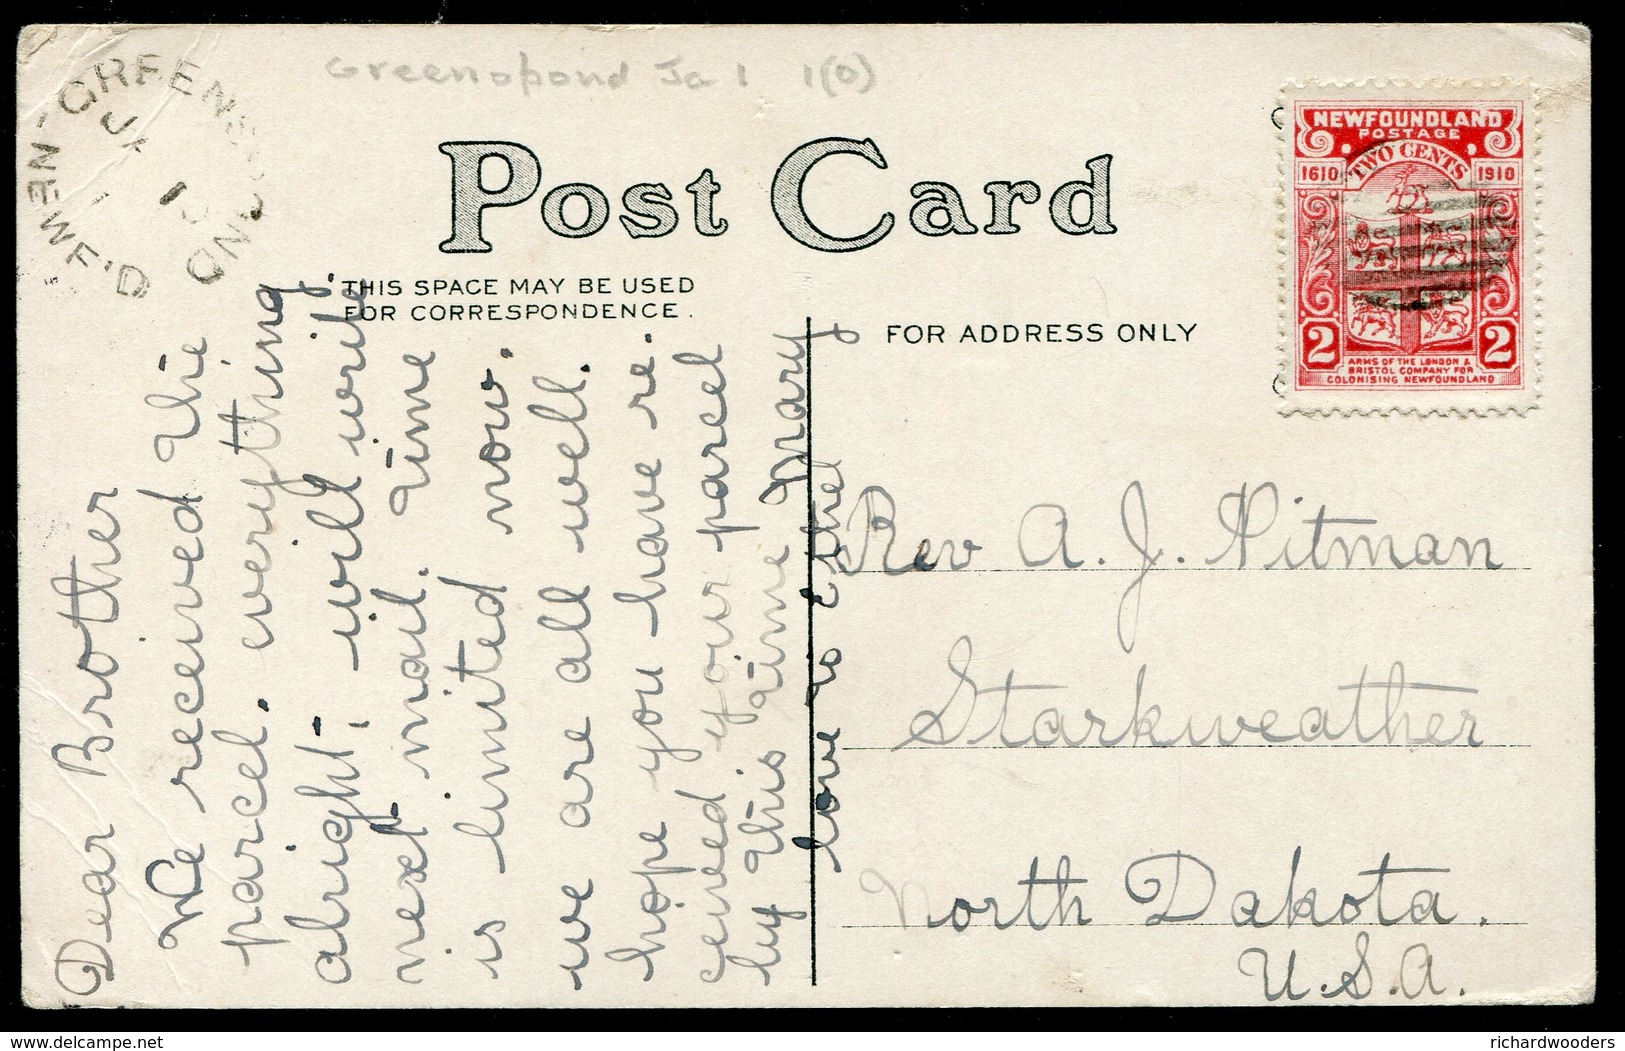 Greenspond Ja 1 1(0)
GREENSPOND
NEWF'D
JA
1
10
Post Card
THIS SPACE MAY BE USED
FOR CORRESPONDENCE.
FOR ADDRESS ONLY
NEWFOUNDLAND
POSTAGE
TWO CENTS
1610 1910
2 2
ARMS OF THE LONDON &
BRISTOL COMPANY FOR
COLONISING NEWFOUNDLAND
Dear Brother
We received the
parcel. everything
alright, will write
next mail. time
is limited now.
we are all well.
hope you have re.
ceived your parcel
by this time Mary
love to Ethel
Rev A. J. Pitman
Starkweather
North Dakota.
U.S.A.
delcampe.net
richardwooders